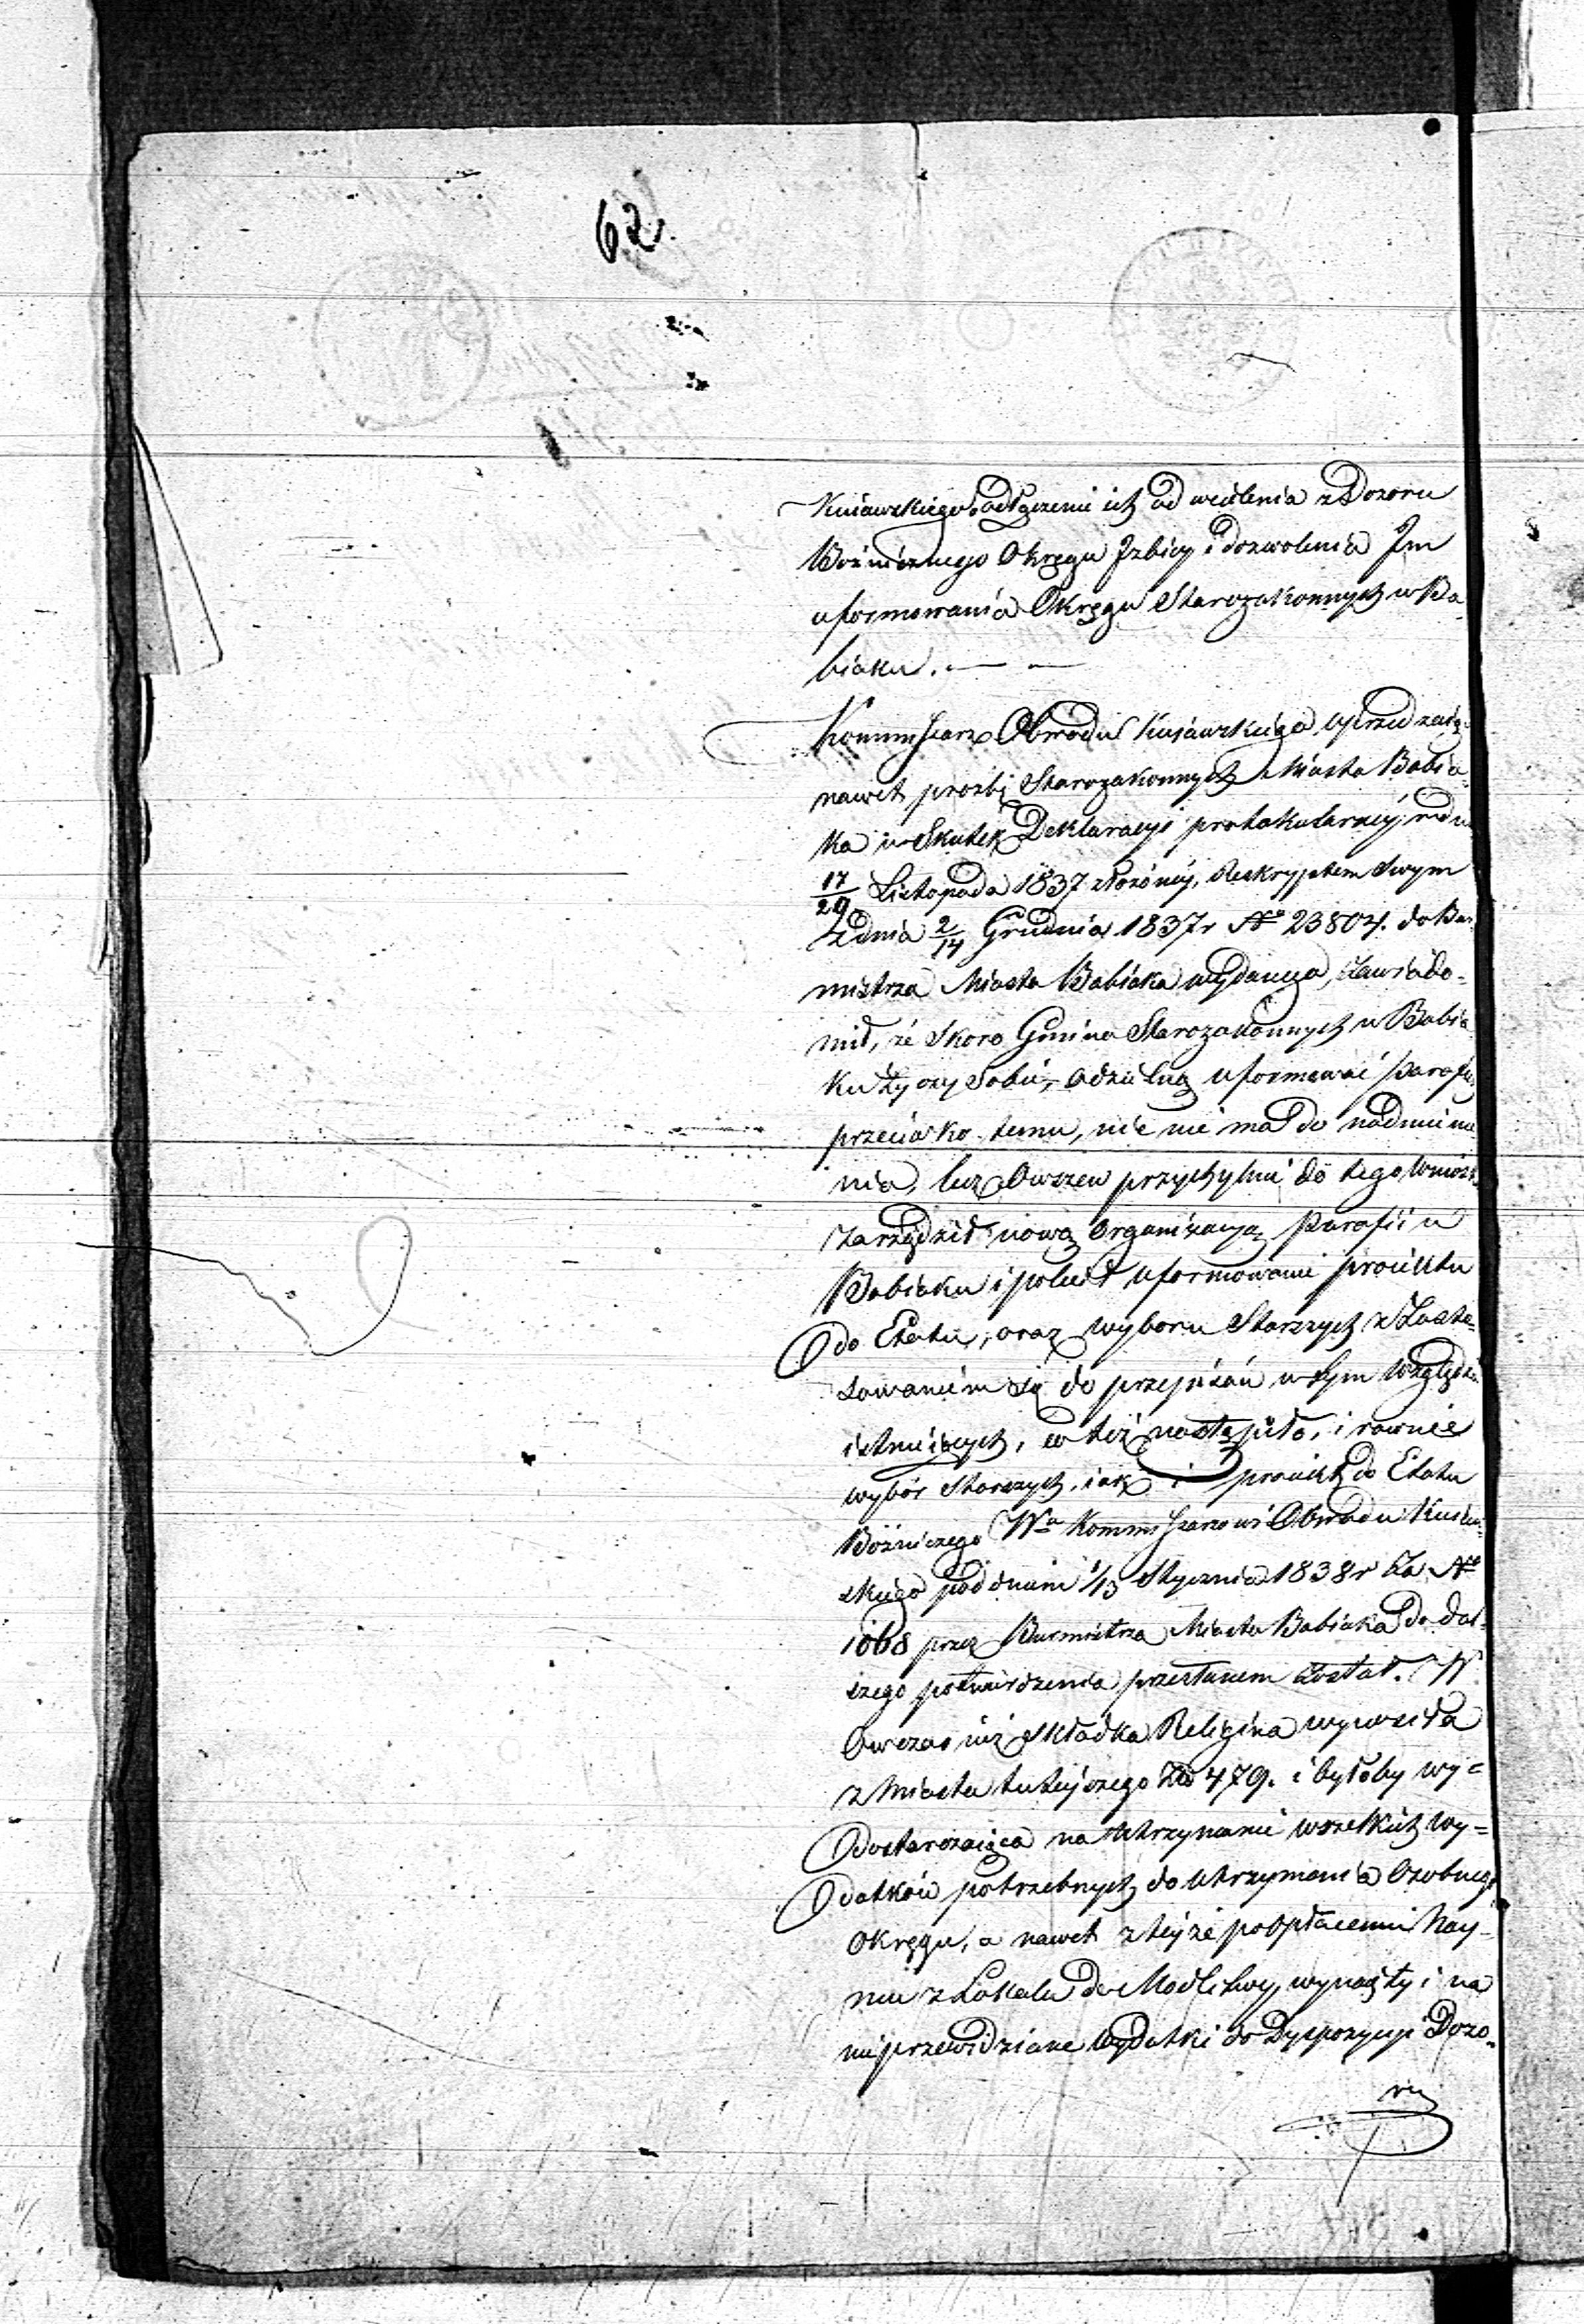 62.
Kuiawskiego, odłączenie ich od wcielenia z Dozoru
Bożniczego Okręgu Izbicy i dozwolenia Im
uformowania Okręgu Starozakonnych w Ba-
biaku. — —
Kommissarz Obwodu Kujawskiego uprzedzaią
nawet prozbę Starozakonnych Miasta Babia-
ka w Skutek Deklaracyi protokularney w dniu
17/29 Listopada 1837 złożoney, Reskryptem Swym
z dnia 2/14 Grudnia 1837 r № 23804. do Bur-
mistrza Miasta Babiaka wydanego, zawiado-
mił, że Skoro Gmina Starozakonnych w Babia
ku życzy Sobie, oddzielną uformować Parafię
przeciwko temu, nic nie ma do nadmienie
nia, lecz Owszem przychylnie do tego wniosk
Zarządził nową Organizacyą Parafii w
Babiaku i polecił uformowanie proiektu
do Etatu, oraz wyboru Starszych z Zasto-
sowaniem się do przepisów w tym względzie
istnieiących, co też nastąpiło, i rownie
wybór Starszych, iak i proiekt do Etatu
Bóżniczego Wu Kommissarzowi Obwodu Kuiaw-
skiego pod dniem 1/13 Stycznia 1838 r Za №
1068 przez Burmistrza Miasta Babiaka do dal-
szego potwierdzenia przesłanem został. W
Owczas już Składka Religijna wynosiła
z Miasta tuteyszego Złp 479. i byłoby wy=
dostarczaiąca na utrzymanie wszelkich wy=
datków potrzebnych do utrzymania Osobnego
Okręgu, a nawet z teyże po opłaceniu Nay-
mu z Lokalu do Modlitwy wynajęty i na
nieprzewidziane wydatki do Dyspozycyi Dozo-
ru